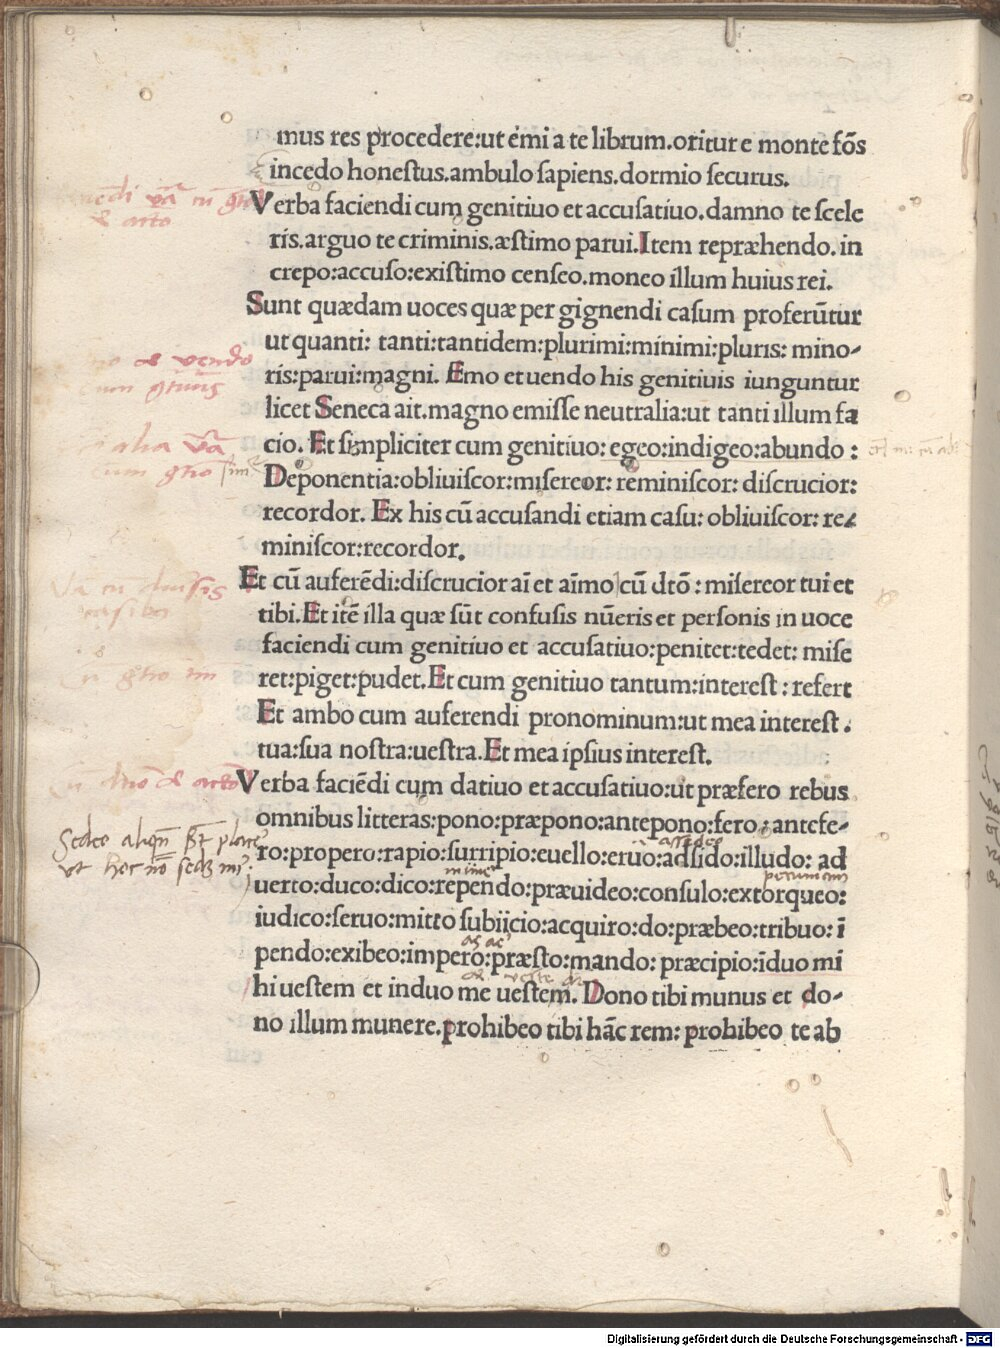 mus res procedere:ut émi a te librum.oritur e monte fōs
incedo honeſtus.ambulo ſapiens.dormio ſecurus.
Verba faciendi cum genitiuo et accuſatiuo.damno te ſcele
ris.arguo te criminis.æſtimo parui.Item repræhendo.in
crepo:accuſo:exiſtimo cenſeo.moneo illum huius rei.
Sunt quædam uoces quæ per gignendi caſum proferūtur
ut quanti: tanti:tantidem:plurimi:minimi:pluris: mino-
ris:parui:magni. Emo et uendo his genitiuis iunguntur
licet Seneca ait.magno emiſſe neutralia:ut tanti illum fa
cio. Et ſimpliciter cum genitiuo: egeo:indigeo:abundo :
Deponentia:obliuiſcor:miſereor: reminiſcor: diſcrucior:
recordor. Ex his cū accuſandi etiam caſu: obliuiſcor: re-
miniſcor:recordor.
Et cū auferēdi:diſcrucior aī et aīmo cū dtō : miſereor tui et
tibi.Et itē illa quæ ſūt confuſis nūeris et perſonis in uoce
faciendi cum genitiuo et accuſatiuo:penitet:tedet: miſe
ret:piget:pudet.Et cum genitiuo tantum:intereſt : refert
Et ambo cum auferendi pronominum:ut mea intereſt .
tua:ſua noſtra:ueſtra.Et mea ipſius intereſt.
Verba faciēdi cum datiuo et accuſatiuo:ut præfero rebus
omnibus litteras:pono:præpono:antepono:fero:antefe-
Sedeo
ro:propero:rapio:ſurripio:euello:eruo:adſido:illudo: ad
uerto:duco:dico:rependo:præuideo:conſulo:extorqueo:
iudico:ſeruo:mitto ſubiicio:acquiro:do:præbeo:tribuo: ī
pendo:exibeo:impero:præſto:mando: præcipio:īduo mi
hi ueſtem et induo me ueſtem. Dono tibi munus et do-
no illum munere.prohibeo tibi hāc rem: prohibeo te ab
Digitalisierung gefördert durch die Deutsche Forschungsgemeinschaft - DFG